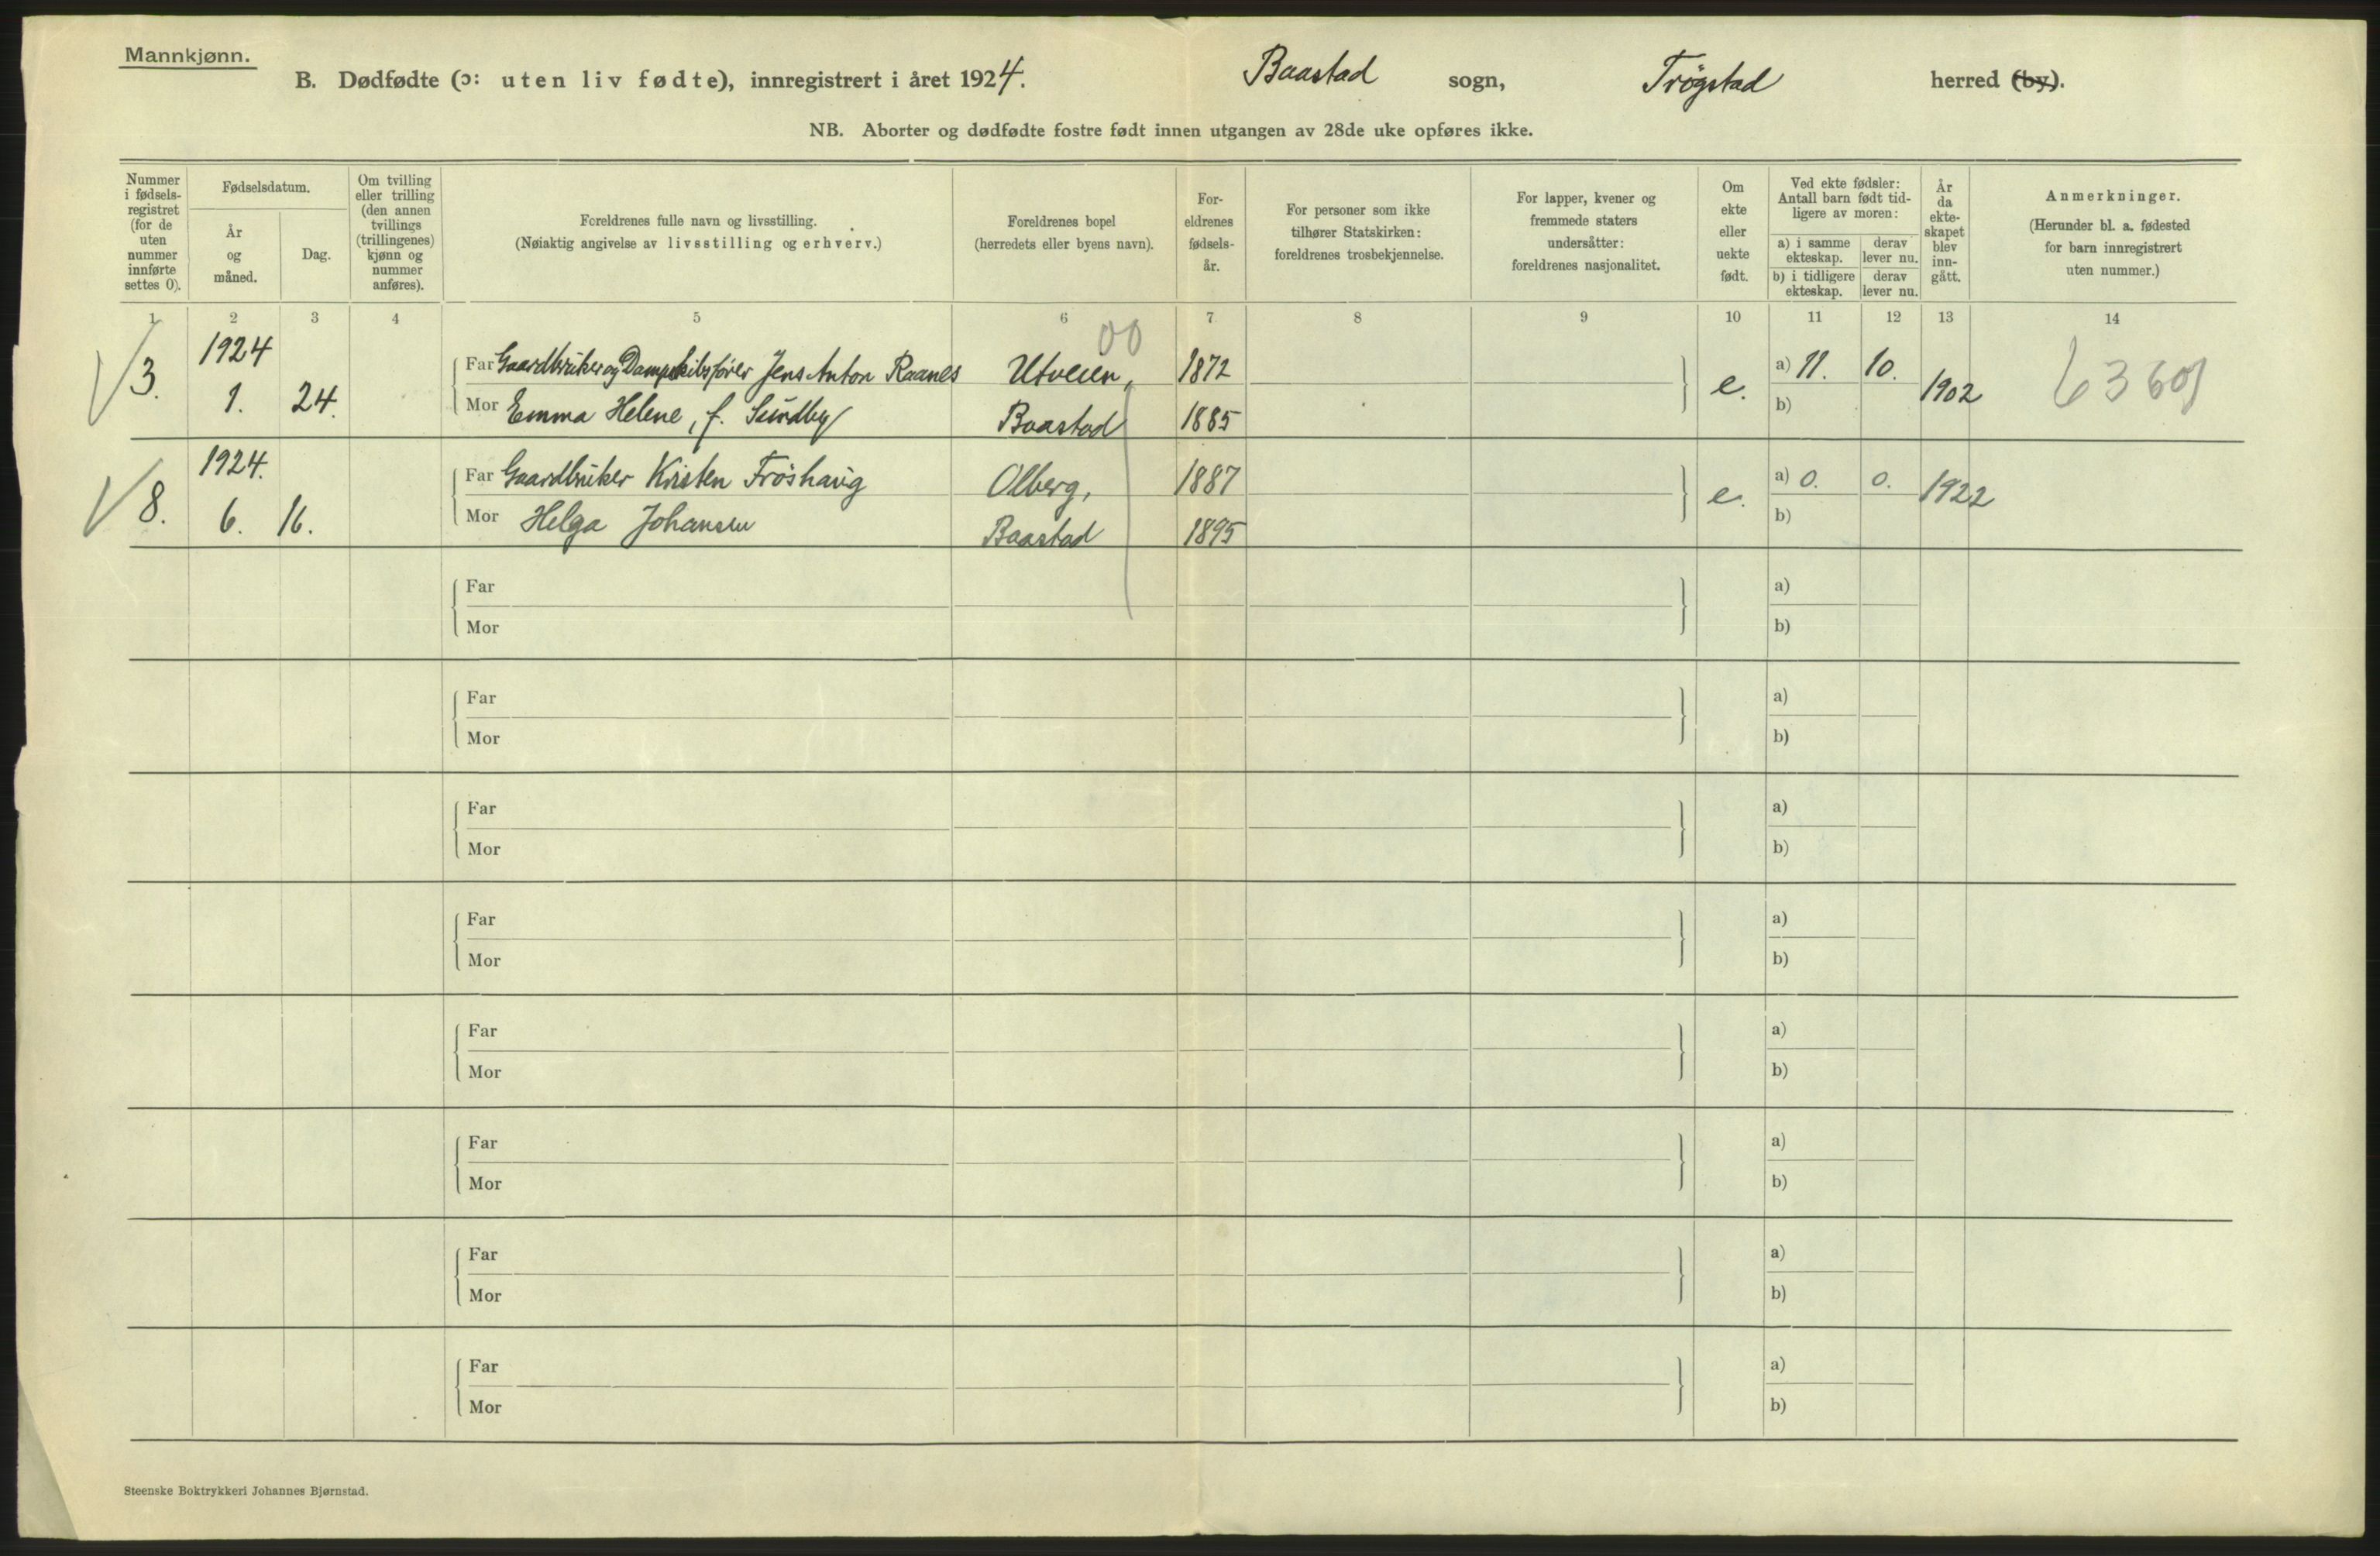 Mannkjønn.
B. Dødfødte (ɔ: uten liv fødte), innregistrert i året 1924. Baastad sogn, Trøgstad herred (by).
NB. Aborter og dødfødte fostre født innen utgangen av 28de uke opføres ikke.
Nummer
i fødsels-
registret
(for de
uten
nummer
innførte
settes 0).
Fødselsdatum.
År
og
måned.
Dag.
Om tvilling
eller trilling
(den annen
tvillings
(trillingenes)
kjønn og
nummer
anføres).
Foreldrenes fulle navn og livsstilling.
(Nøiaktig angivelse av livsstilling og erhverv.)
Foreldrenes bopel
(herredets eller byens navn).
For-
eldrenes
fødsels-
år.
For personer som ikke
tilhører Statskirken:
foreldrenes trosbekjennelse.
For lapper, kvener og
fremmede staters
undersåtter:
foreldrenes nasjonalitet.
Om
ekte
eller
uekte
født.
Ved ekte fødsler:
Antall barn født tid-
ligere av moren:
a) i samme
ekteskap.
derav
lever nu.
b) i tidligere
ekteskap.
derav
lever nu.
År
da
ekte-
skapet
blev
inn-
gått.
Anmerkninger.
(Herunder bl. a. fødested
for barn innregistrert
uten nummer.)
1 2 3 4 5 6 7 8 9 10 11 12 13 14
00
3. 1924 1. 24.
Far Gaardbruker og Dampskibsfører Jens Anton Raanes Utveien, 1872 e. a) 11. 10. 1902
Mor Emma Helene, f. Sundby Baastad 1885 b)
8. 1924. 6. 16.
Far Gaardbruker Kristen Frøshaug Olberg, 1887 e. a) 0. 0. 1922
Mor Helga Johansen Baastad 1895 b)
Far a)
Mor b)
Far a)
Mor b)
Far a)
Mor b)
Far a)
Mor b)
Far a)
Mor b)
Far a)
Mor b)
Far a)
Mor b)
Far a)
Mor b)
Steenske Boktrykkeri Johannes Bjørnstad.